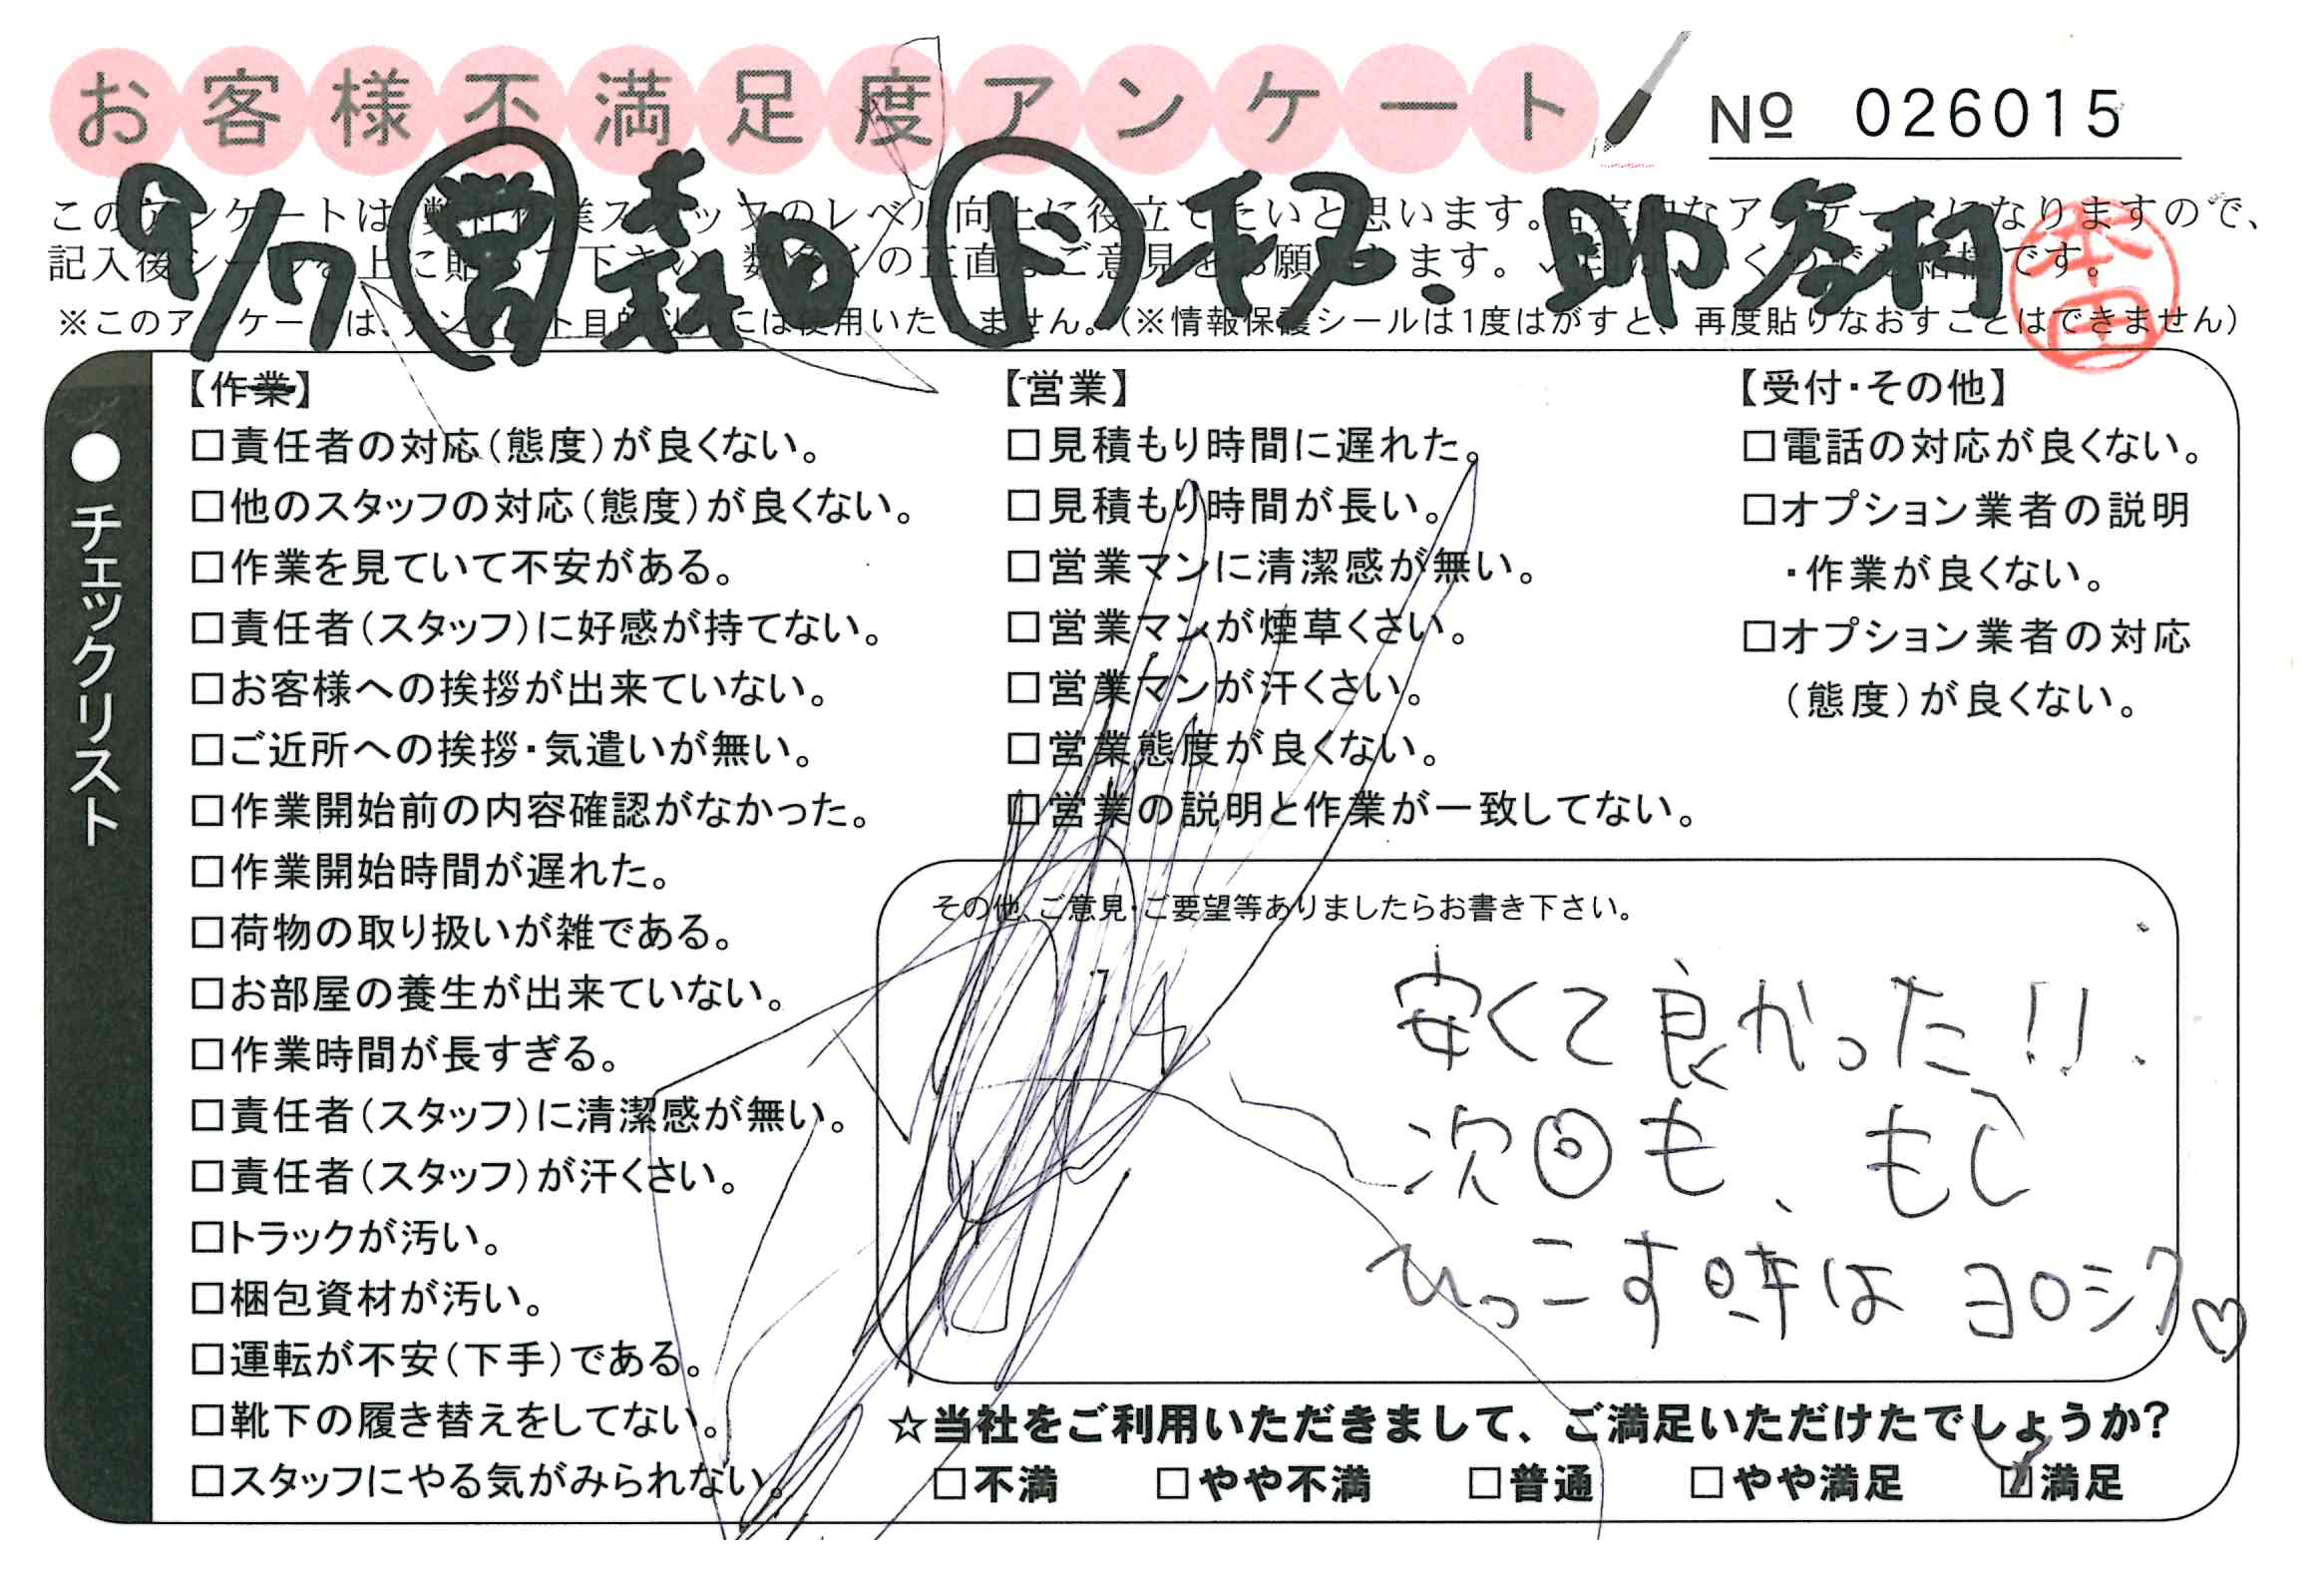 お客様不満足度アンケート
№ 026015
9/7 営 森田 ド 秘、助 谷村
本田
このアンケートは、弊社作業スタッフのレベル向上に役立てたいと思います。なアンケートになりますので、
記入後シールを上に貼って下さい。数多くの正直なご意見をお願いします。いくつでも結構です。
※このアンケートは、アンケート目的以外には使用いたしません。(※情報保護シールは1度はがすと、再度貼りなおすことはできません)
●チェックリスト
【作業】
□責任者の対応(態度)が良くない。
□他のスタッフの対応(態度)が良くない。
□作業を見ていて不安がある。
□責任者(スタッフ)に好感が持てない。
□お客様への挨拶が出来ていない。
□ご近所への挨拶・気遣いが無い。
□作業開始前の内容確認がなかった。
□作業開始時間が遅れた。
□荷物の取り扱いが雑である。
□お部屋の養生が出来ていない。
□作業時間が長すぎる。
□責任者(スタッフ)に清潔感が無い。
□責任者(スタッフ)が汗くさい。
□トラックが汚い。
□梱包資材が汚い。
□運転が不安(下手)である。
□靴下の履き替えをしてない。
□スタッフにやる気がみられない。
【営業】
□見積もり時間に遅れた。
□見積もり時間が長い。
□営業マンに清潔感が無い。
□営業マンが煙草くさい。
□営業マンが汗くさい。
□営業態度が良くない。
□営業の説明と作業が一致してない。
【受付・その他】
□電話の対応が良くない。
□オプション業者の説明
・作業が良くない。
□オプション業者の対応
(態度)が良くない。
その他、ご意見・ご要望等ありましたらお書き下さい。
安くて良かった!!
次回も、もし
ひっこす時はヨロシク♡
☆当社をご利用いただきまして、ご満足いただけたでしょうか?
□不満 □やや不満 □普通 □やや満足 ☑満足